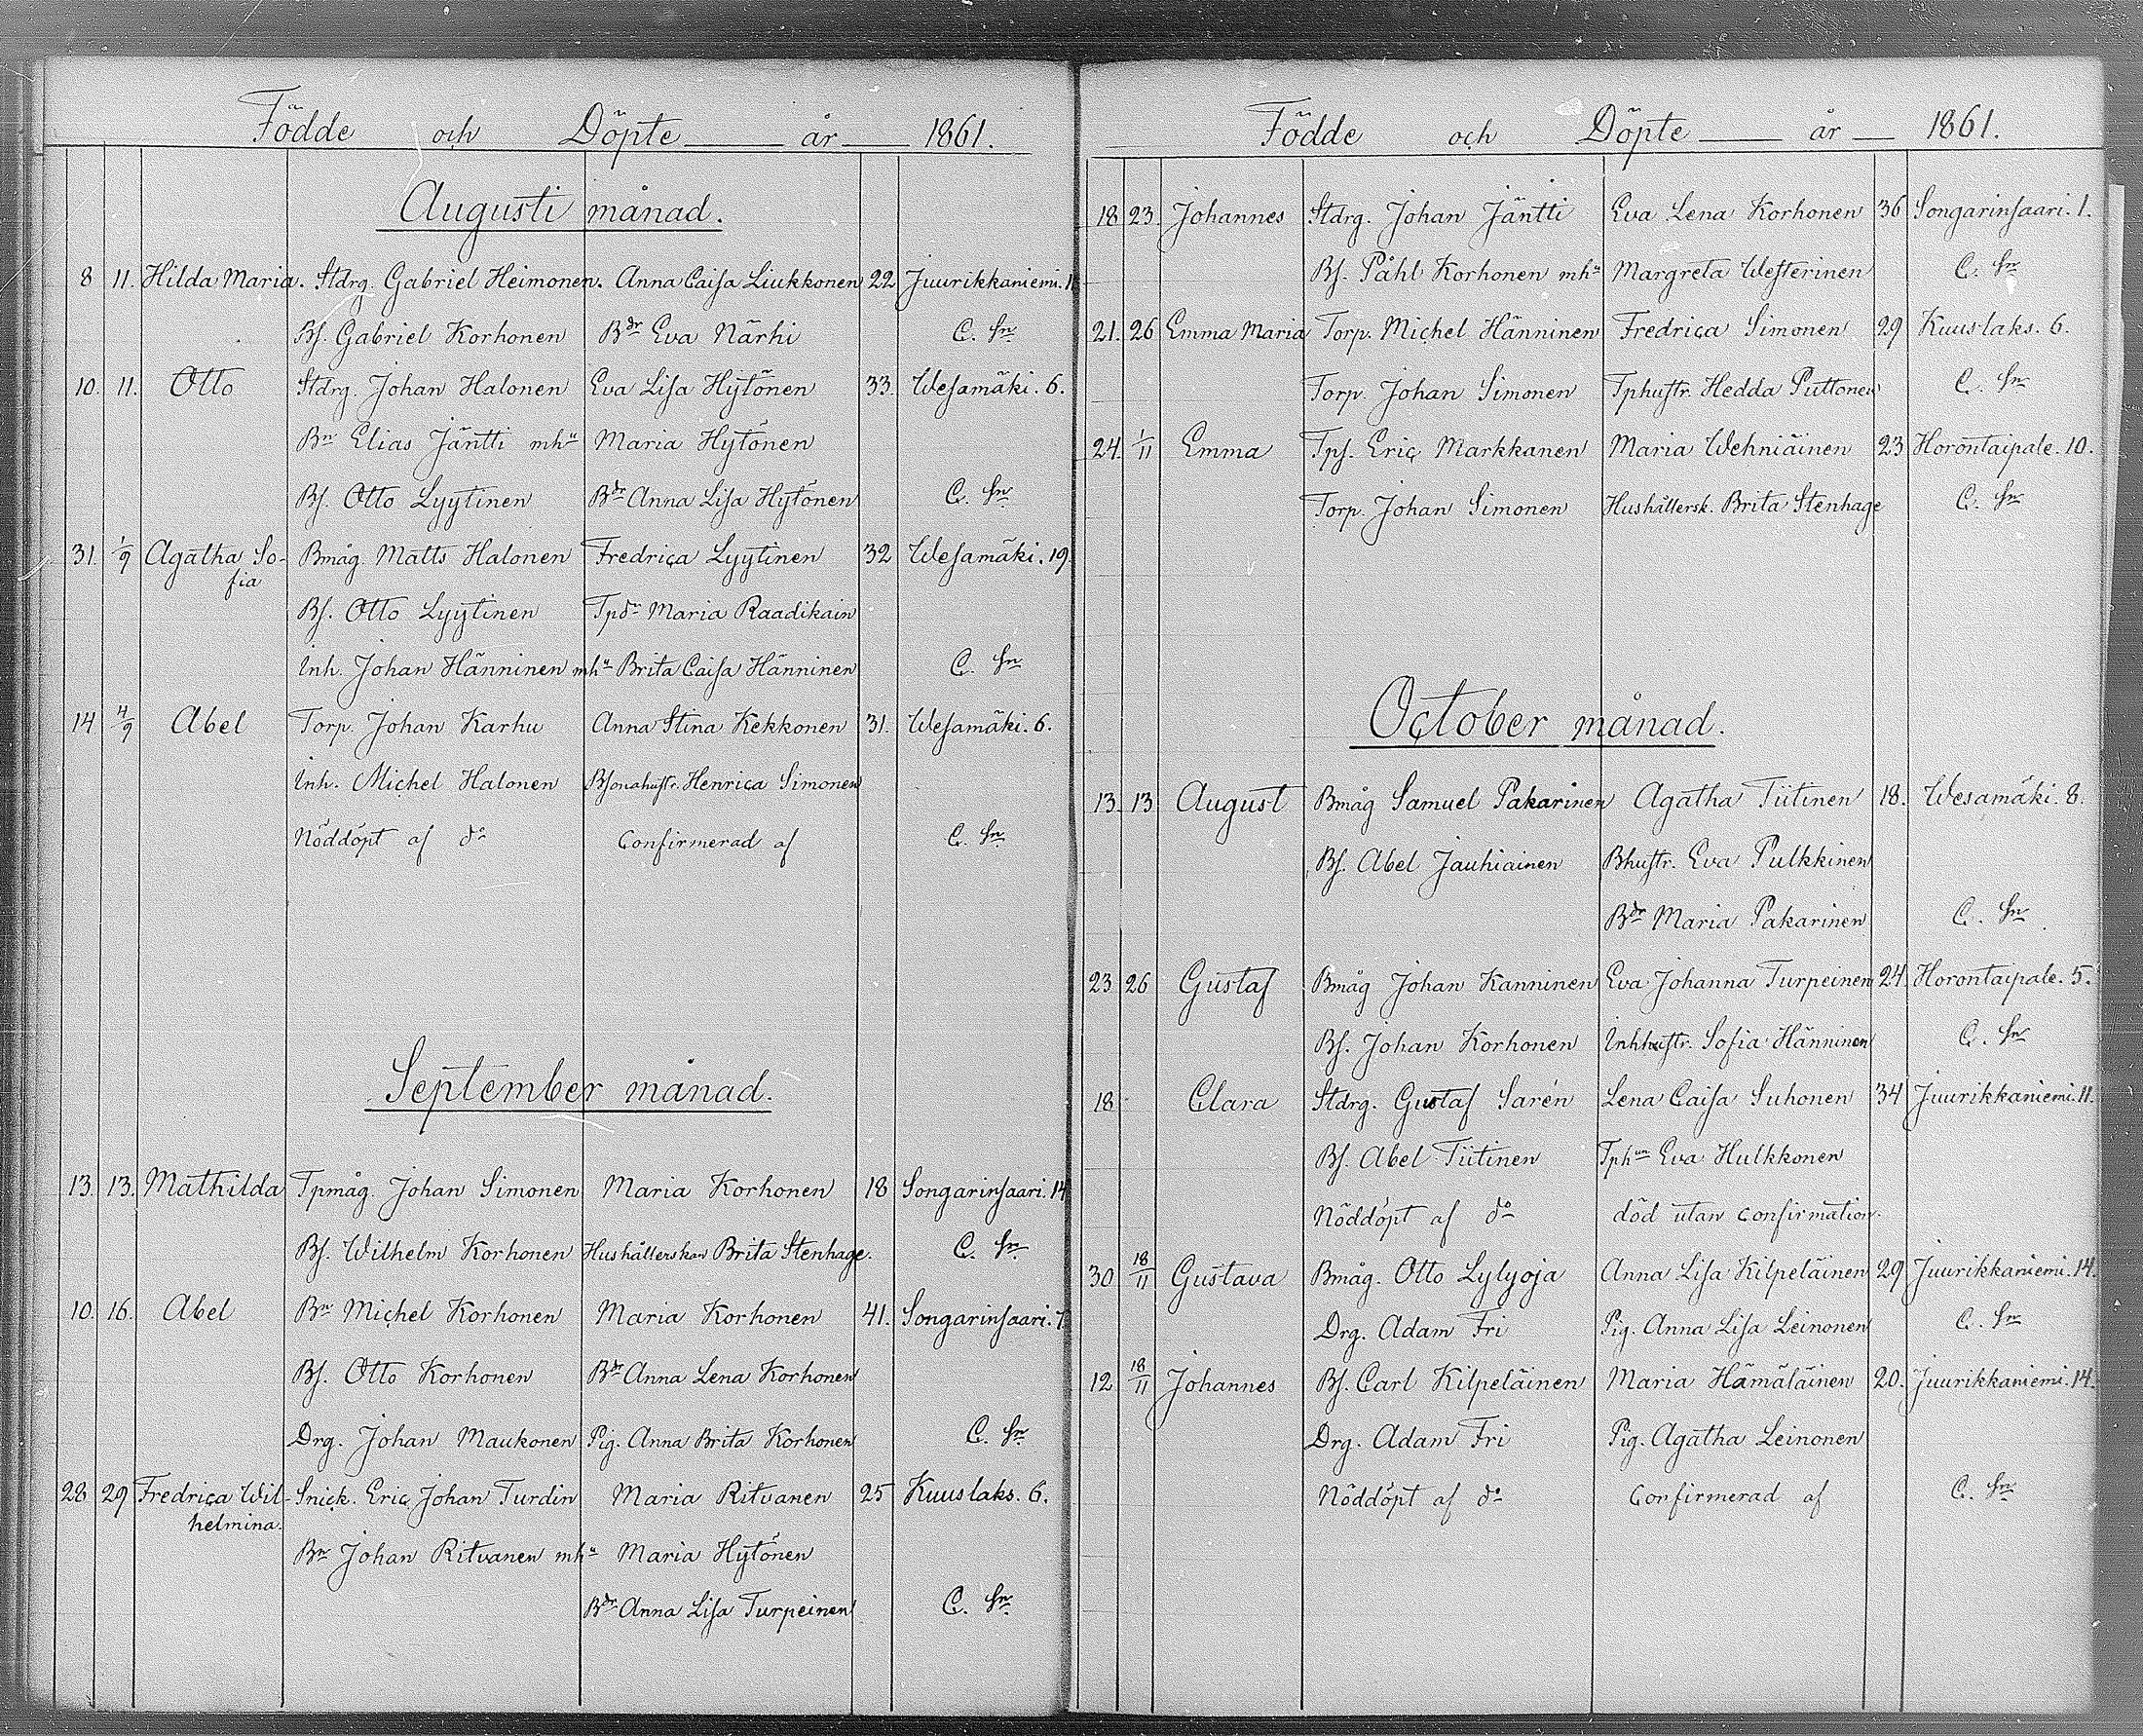 Födde och Döpte år 1861.
Augusti månad.
8 11. Hilda Maria. Stdrg. Gabriel Heimonen. Anna Caisa Liukkonen 22 Juurikkaniemi. 1
Bs. Gabriel Korhonen Bdr Eva Närhi C. Sn
10. 11. Otto Stdrg. Johan Halonen Eva Lisa Hytönen 33. Wesamäki. 6.
Bn Elias Jäntti mhu Maria Hytönen
Bs. Otto Lyytinen Bdr Anna Lisa Hytönen C. Sn
31. 1/9 Agatha So- Bmåg. Matts Halonen Fredrica Lyytinen 32 Wesamäki. 19.
fia
Bs. Otto Lyytinen Tpdr Maria Raadikain
Inh. Johan Hänninen mhu Brita Caisa Hänninen C. Sn
14 4/9 Abel Torp. Johan Karhu Anna Stina Kekkonen 31. Wesamäki. 6.
Inh. Michel Halonen Bsonahustr. Henrica Simonen
Nöddöpt af do Confirmerad af C. Sn
September månad.
13. 13. Mathilda Tpmåg. Johan Simonen Maria Korhonen 18 Songarinsaari. 14
Bs. Wilhelm Korhonen Hushållerskan Brita Stenhage. C. Sn
10. 16. Abel Bn Michel Korhonen Maria Korhonen 41. Songarinsaari.
Bs. Otto Korhonen Bdr Anna Lena Korhonen
Drg. Johan Maukonen Pig. Anna Brita Korhonen C. Sn
28 29 Fredrica Wil- Snick. Eric Johan Turdin Maria Ritvanen 25 Kuuslaks. 6.
helmina.
Bn Johan Ritvanen mhu Maria Hytönen
Bdr Anna Lisa Turpeinen C. Sn
Födde och Döpte år 1861.
18 23 Johannes Stdrg. Johan Jäntti Eva Lena Korhonen 36 Songarinsaari. 1.
Bs. Påhl Korhonen mhu Margreta Westerinen C. Sn
21. 26 Emma Maria Torp. Michel Hänninen Fredrica Simonen 29 Kuuslaks. 6.
Torp. Johan Simonen Tphustr. Hedda Puttonen C. Sn
24. 1/11 Emma Tps. Eric Markkanen Maria Wehniäinen 23 Horontaipale. 10.
Torp. Johan Simonen Hushållersk. Brita Stenhage C. Sn
October månad.
13. 13 August Bmåg Samuel Pakarinen Agatha Tiitinen 18. Wesamäki. 8.
Bs. Abel Jauhiainen Bhustr. Eva Pulkkinen
Bdr Maria Pakarinen C. Sn
23 26 Gustaf Bmåg Johan Kanninen Eva Johanna Turpeinen 24. Horontaipale. 5.
Bs. Johan Korhonen Inhhustr. Sofia Hänninen C. Sn
18 Clara Stdrg. Gustaf Sarén Lena Caisa Suhonen 34 Juurikkaniemi. 11.
Bs. Abel Tiitinen Tphun Eva Hulkkonen
Nöddöpt af do död utan confirmation.
30 18/11 Gustava Bmåg. Otto Lylyoja Anna Lisa Kilpeläinen 29 Juurikkaniemi. 14.
Drg. Adam Fri Pig. Anna Lisa Leinonen C. Sn
12 18/11 Johannes Bs. Carl Kilpeläinen Maria Hämäläinen 20. Juurikkaniemi. 14.
Drg. Adam Fri Pig. Agatha Leinonen
Nöddöpt af do Confirmerad af C. Sn